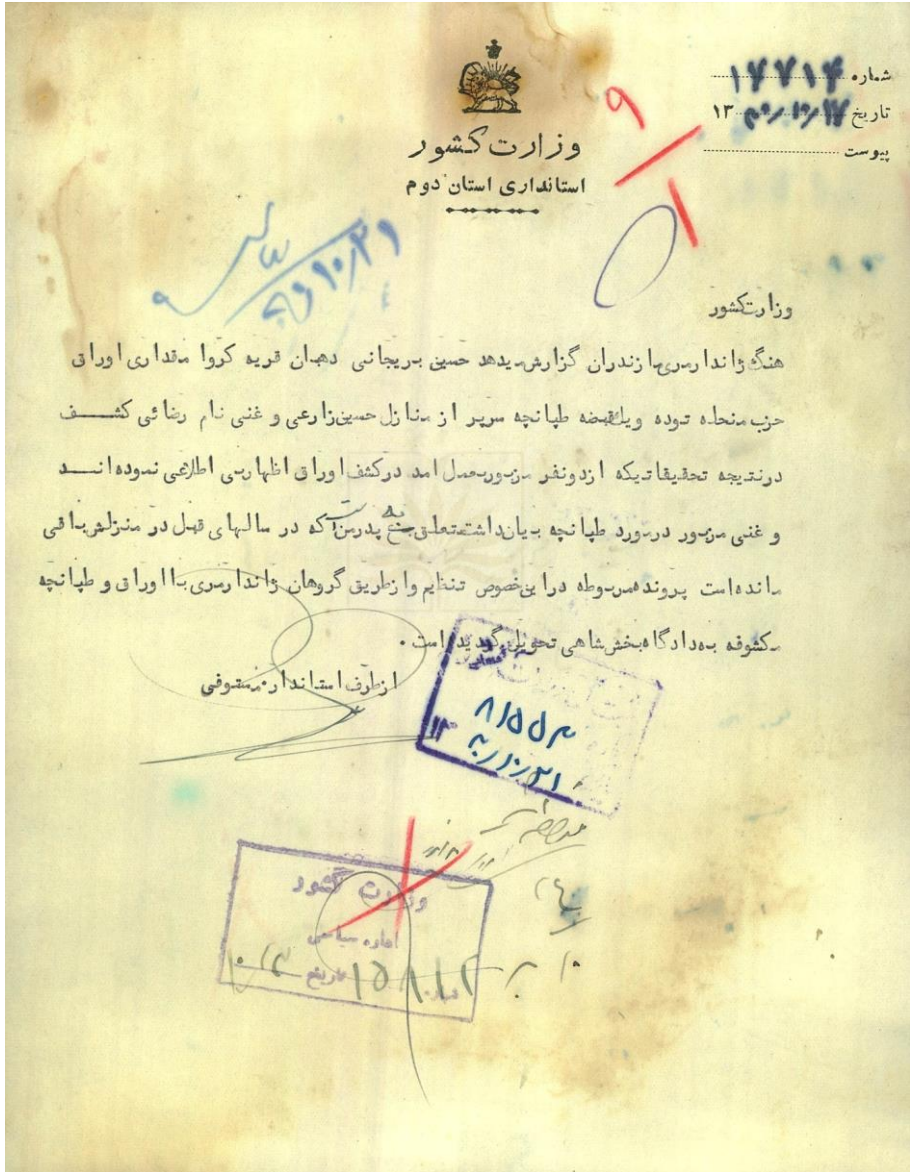 شماره ۱۷۷۱۴
تاریخ ۱۳
پیوست
وزارت کشور
استانداری استان دوم
۹/۱
۱۰/۲۱
وزارت کشور
هنگ ژاندارمری مازندران گزارش میدهد حسین بریجانی دهبان قریه کروا مقداری اوراق
حزب منحله توده ویکقبضه طپانچه سرپر از منازل حسین زارعی و غنی نام رضائی کشف
درنتیجه تحقیقاتیکه ازدونفر مزبوربعمل امد درکشف اوراق اظهاربی اطلاعی نموده اند
و غنی مزبور درمورد طپانچه بیان داشته متعلق به پدرمن است که در سالهای قبل در منزلش باقی
مانده است پرونده مربوطه دراین خصوص تنظیم وازطریق گروهان ژاندارمری با اوراق و طپانچه
مکشوفه به دادگاه بخش شاهی تحویل گردیده است .
ازطرف استاندار مستوفی
۸۱۵۵۴
۱۰/۲۱
۱۳
وزارت کشور
اداره سیاسی
شماره
تاریخ